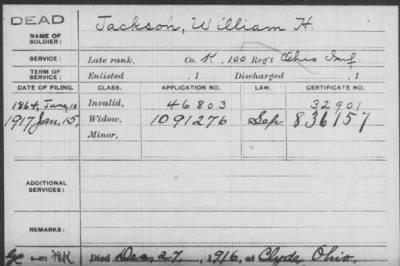 DEAD
NAME OF SOLDIER: Jackson, William H.
SERVICE: Late rank, Co. K, 100 Reg't Ohio Inf.
TERM OF SERVICE: Enlisted , 1 Discharged , 1
DATE OF FILING. CLASS. APPLICATION NO. LAW. CERTIFICATE NO.
1864, June 10 Invalid, 46803 32901
1917 Jan. 15, Widow, 1091276 Sep 836157
Minor,
ADDITIONAL SERVICES:
REMARKS:
Died Dec. 27, 1916, at Clyde Ohio.